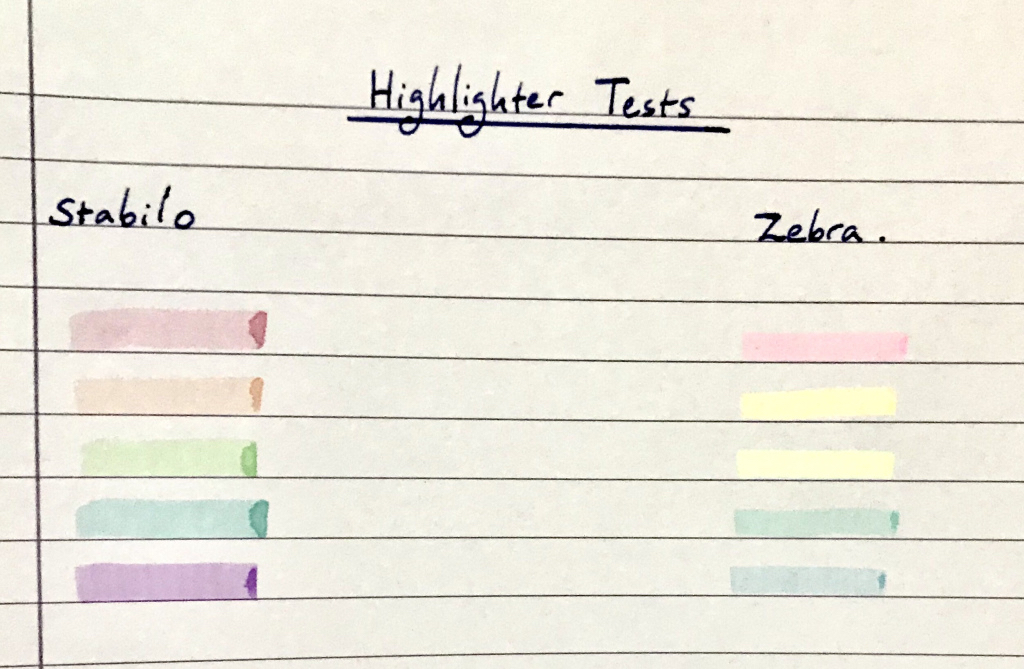 Highlighter Tests
Stabilo
Zebra.